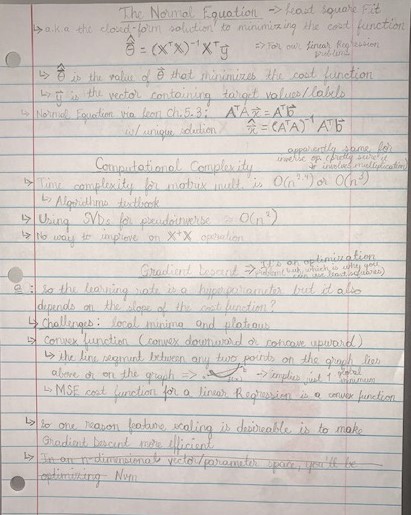 The Normal Equation => Least Square Fit
↳ a.k.a the closed-form solution to minimizing the cost function
θ̂ = (XᵀX)⁻¹Xᵀy⃗ => For our Linear Regression problem
↳ θ̂ is the value of θ⃗ that minimizes the cost function
↳ y⃗ is the vector containing target values/labels
↳ Normal Equation via Leon Ch. 5.3: AᵀAx⃗ = Aᵀb⃗
w/ unique solution x⃗ = (AᵀA)⁻¹ Aᵀb⃗
apparently same for
Computational Complexity inverse op (prolly since it involves multiplication)
↳ Time complexity for matrix mult. is O(n²·⁴) or O(n³)
↳ Algorithms textbook
↳ Using SVDs for pseudoinverse => O(n²)
↳ No way to improve on XᵀX operation
Gradient Descent => It's an optimization
problem which is why you can use least squares)
Q: So the learning rate is a hyperparameter but it also
depends on the slope of the cost function?
↳ Challenges: local minima and plateaus
↳ Convex function (convex downward or concave upward)
↳ the line segment between any two points on the graph lies
above or on the graph => => implies just 1 global minimum
↳ MSE cost function for a Linear Regression is a convex function
↳ So one reason feature scaling is desireable is to make
Gradient Descent more efficient
↳ In an n-dimensional vector/parameter space, you'll be
optimizing Nvm